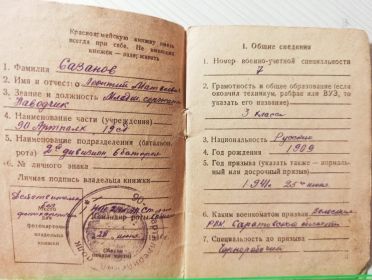 Красноармейскую книжку иметь
всегда при себе. Не имеющих
книжек — задерживать
1. Фамилия Сазанов
2. Имя и отчество Леонтий Матвеевич
3. Звание и должность Младш. сержант
Наводчик
4. Наименование части (учреждения)
90 Артполк
5. Наименование подразделения (батальон,
рота) 2й дивизион
6. № личного знака
Личная подпись владельца книжки
Действительно
без
Место
для
фотокарточки
владельца
книжки
Командир роты
I. Общие сведения
1. Номер военно-учетной специальности
7
2. Грамотность и общее образование (если
окончил техникум, рабфак или ВУЗ, то
указать его название)
3 класса
3. Национальность Русский
4. Год рождения 1909
5. Год призыва (указать также — нормаль-
ный или досрочный призыв)
1941
6. Каким военкоматом призван
РВК, Саратовской области
7. Специальность до призыва